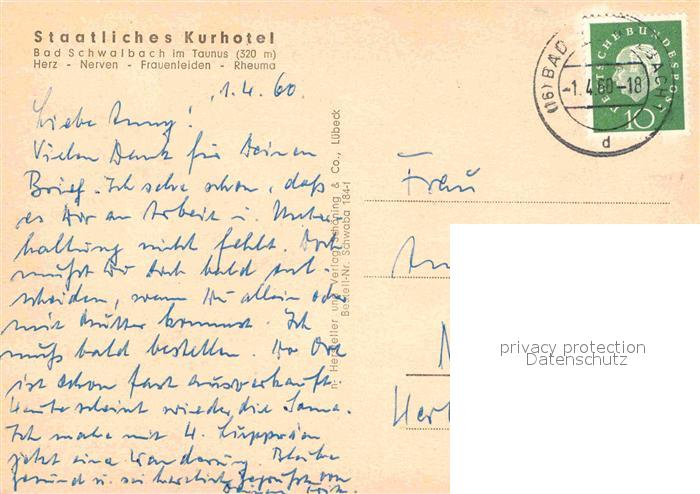 Staatliches Kurhotel
Bad Schwalbach im Taunus (320 m)
Herz - Nerven - Frauenleiden - Rheuma
1.4.60.
Liebe Anny!
Vielen Dank für Deinen
Brief. Ich sehe schon, daß
es Dir an Arbeit u. Unter-
haltung nicht fehlt. Dort
mußt Du Dich bald ent-
scheiden, wann Du allein oder
mit Mutter kommst. Ich
muß bald bestellen. Der Ort
ist schon fast ausverkauft.
Heute scheint wieder die Sonne.
Ich mache mit H.
jetzt eine Wanderung. Bleibe
gesund u. sei herzlich gegrüßt von
Deinem
Hersteller und Verlag Schöning & Co., Lübeck
Bestell-Nr. Schwaba 184-f
(16) BAD SCHWALBACH 1
-1.4.60-18
d
DEUTSCHE BUNDESPOST
10
Frau
privacy protection
Datenschutz